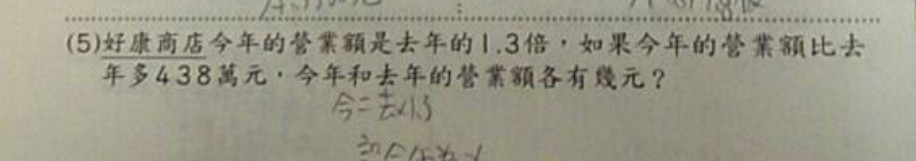 (5)好康商店今年的營業額是去年的1.3倍，如果今年的營業額比去
年多438萬元，今年和去年的營業額各有幾元？
今=去×1.3